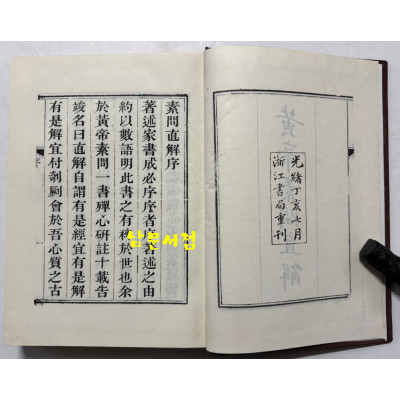 光緒丁亥七月
浙江書局重刊
素問直解序
著述家書成必序序者著述之由
約以數語明此書之有裨於世也余
於黃帝素問一書殫心研註十載告
竣名曰直解自謂有是經宜有是解
有是解宜付剞劂會於吾心質之古
序
남문서점